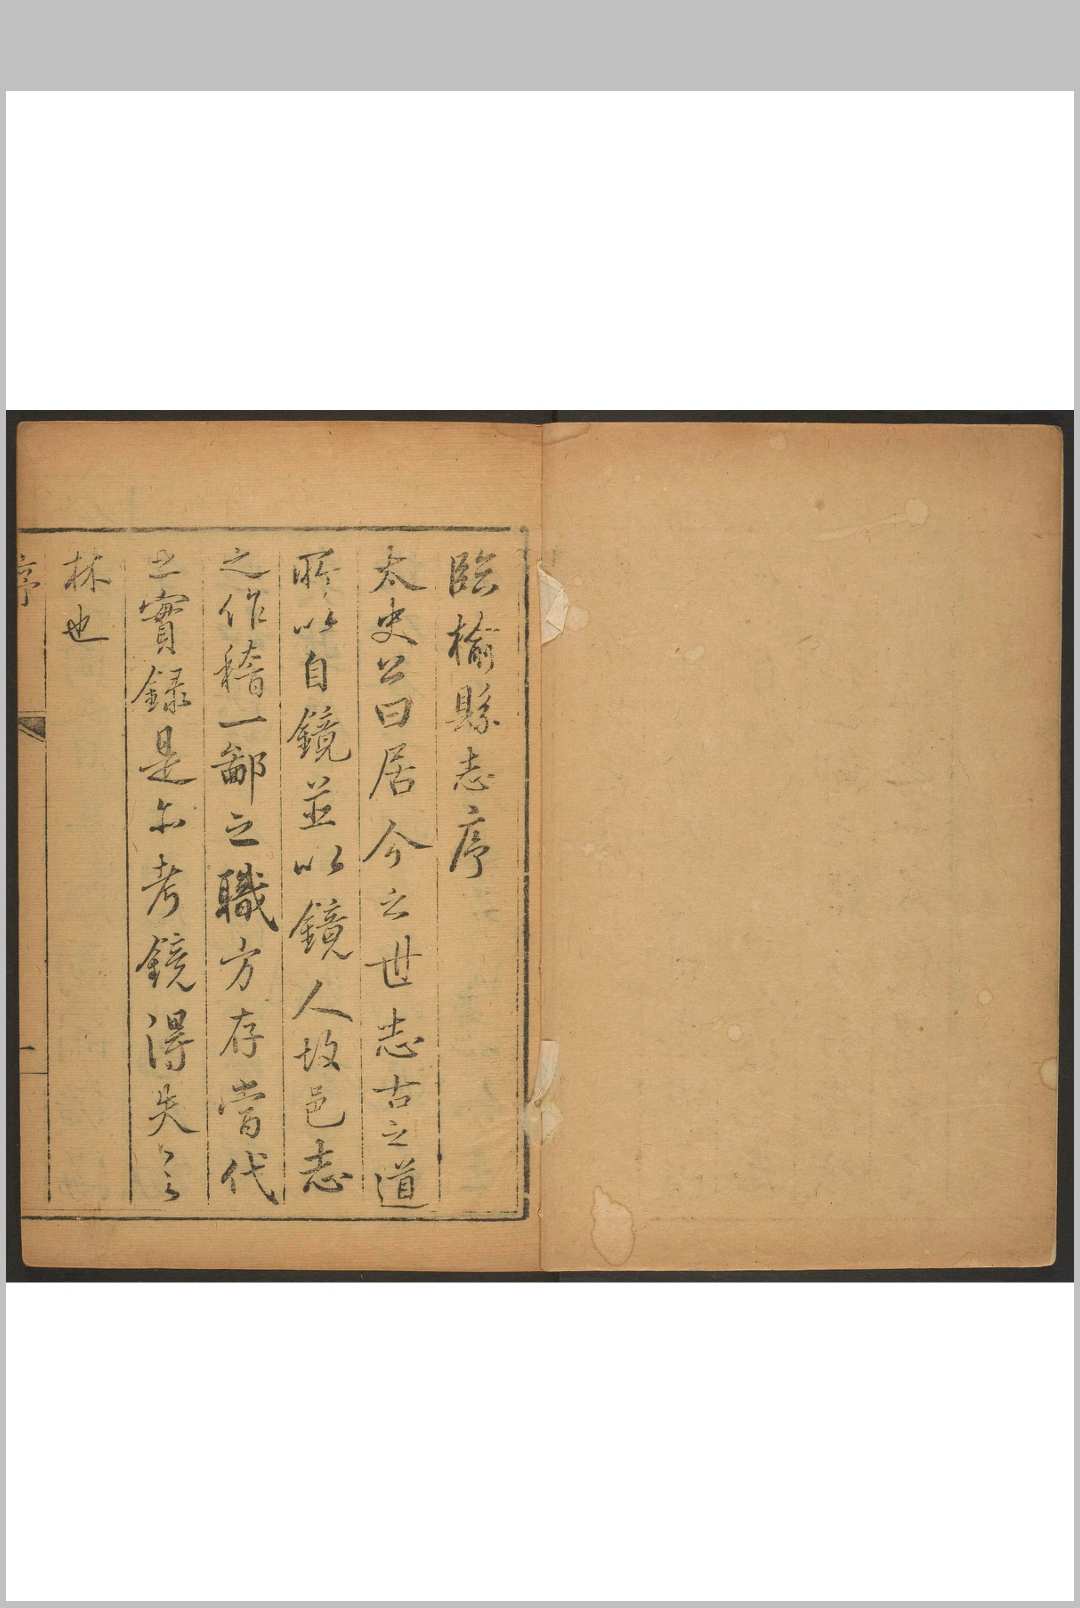 臨榆縣志序
太史公曰居今之世志古之道
所以自鏡並以鏡人故邑志
之作稽一鄙之職方存當代
之實録是亦考鏡得失之
林也
序
一